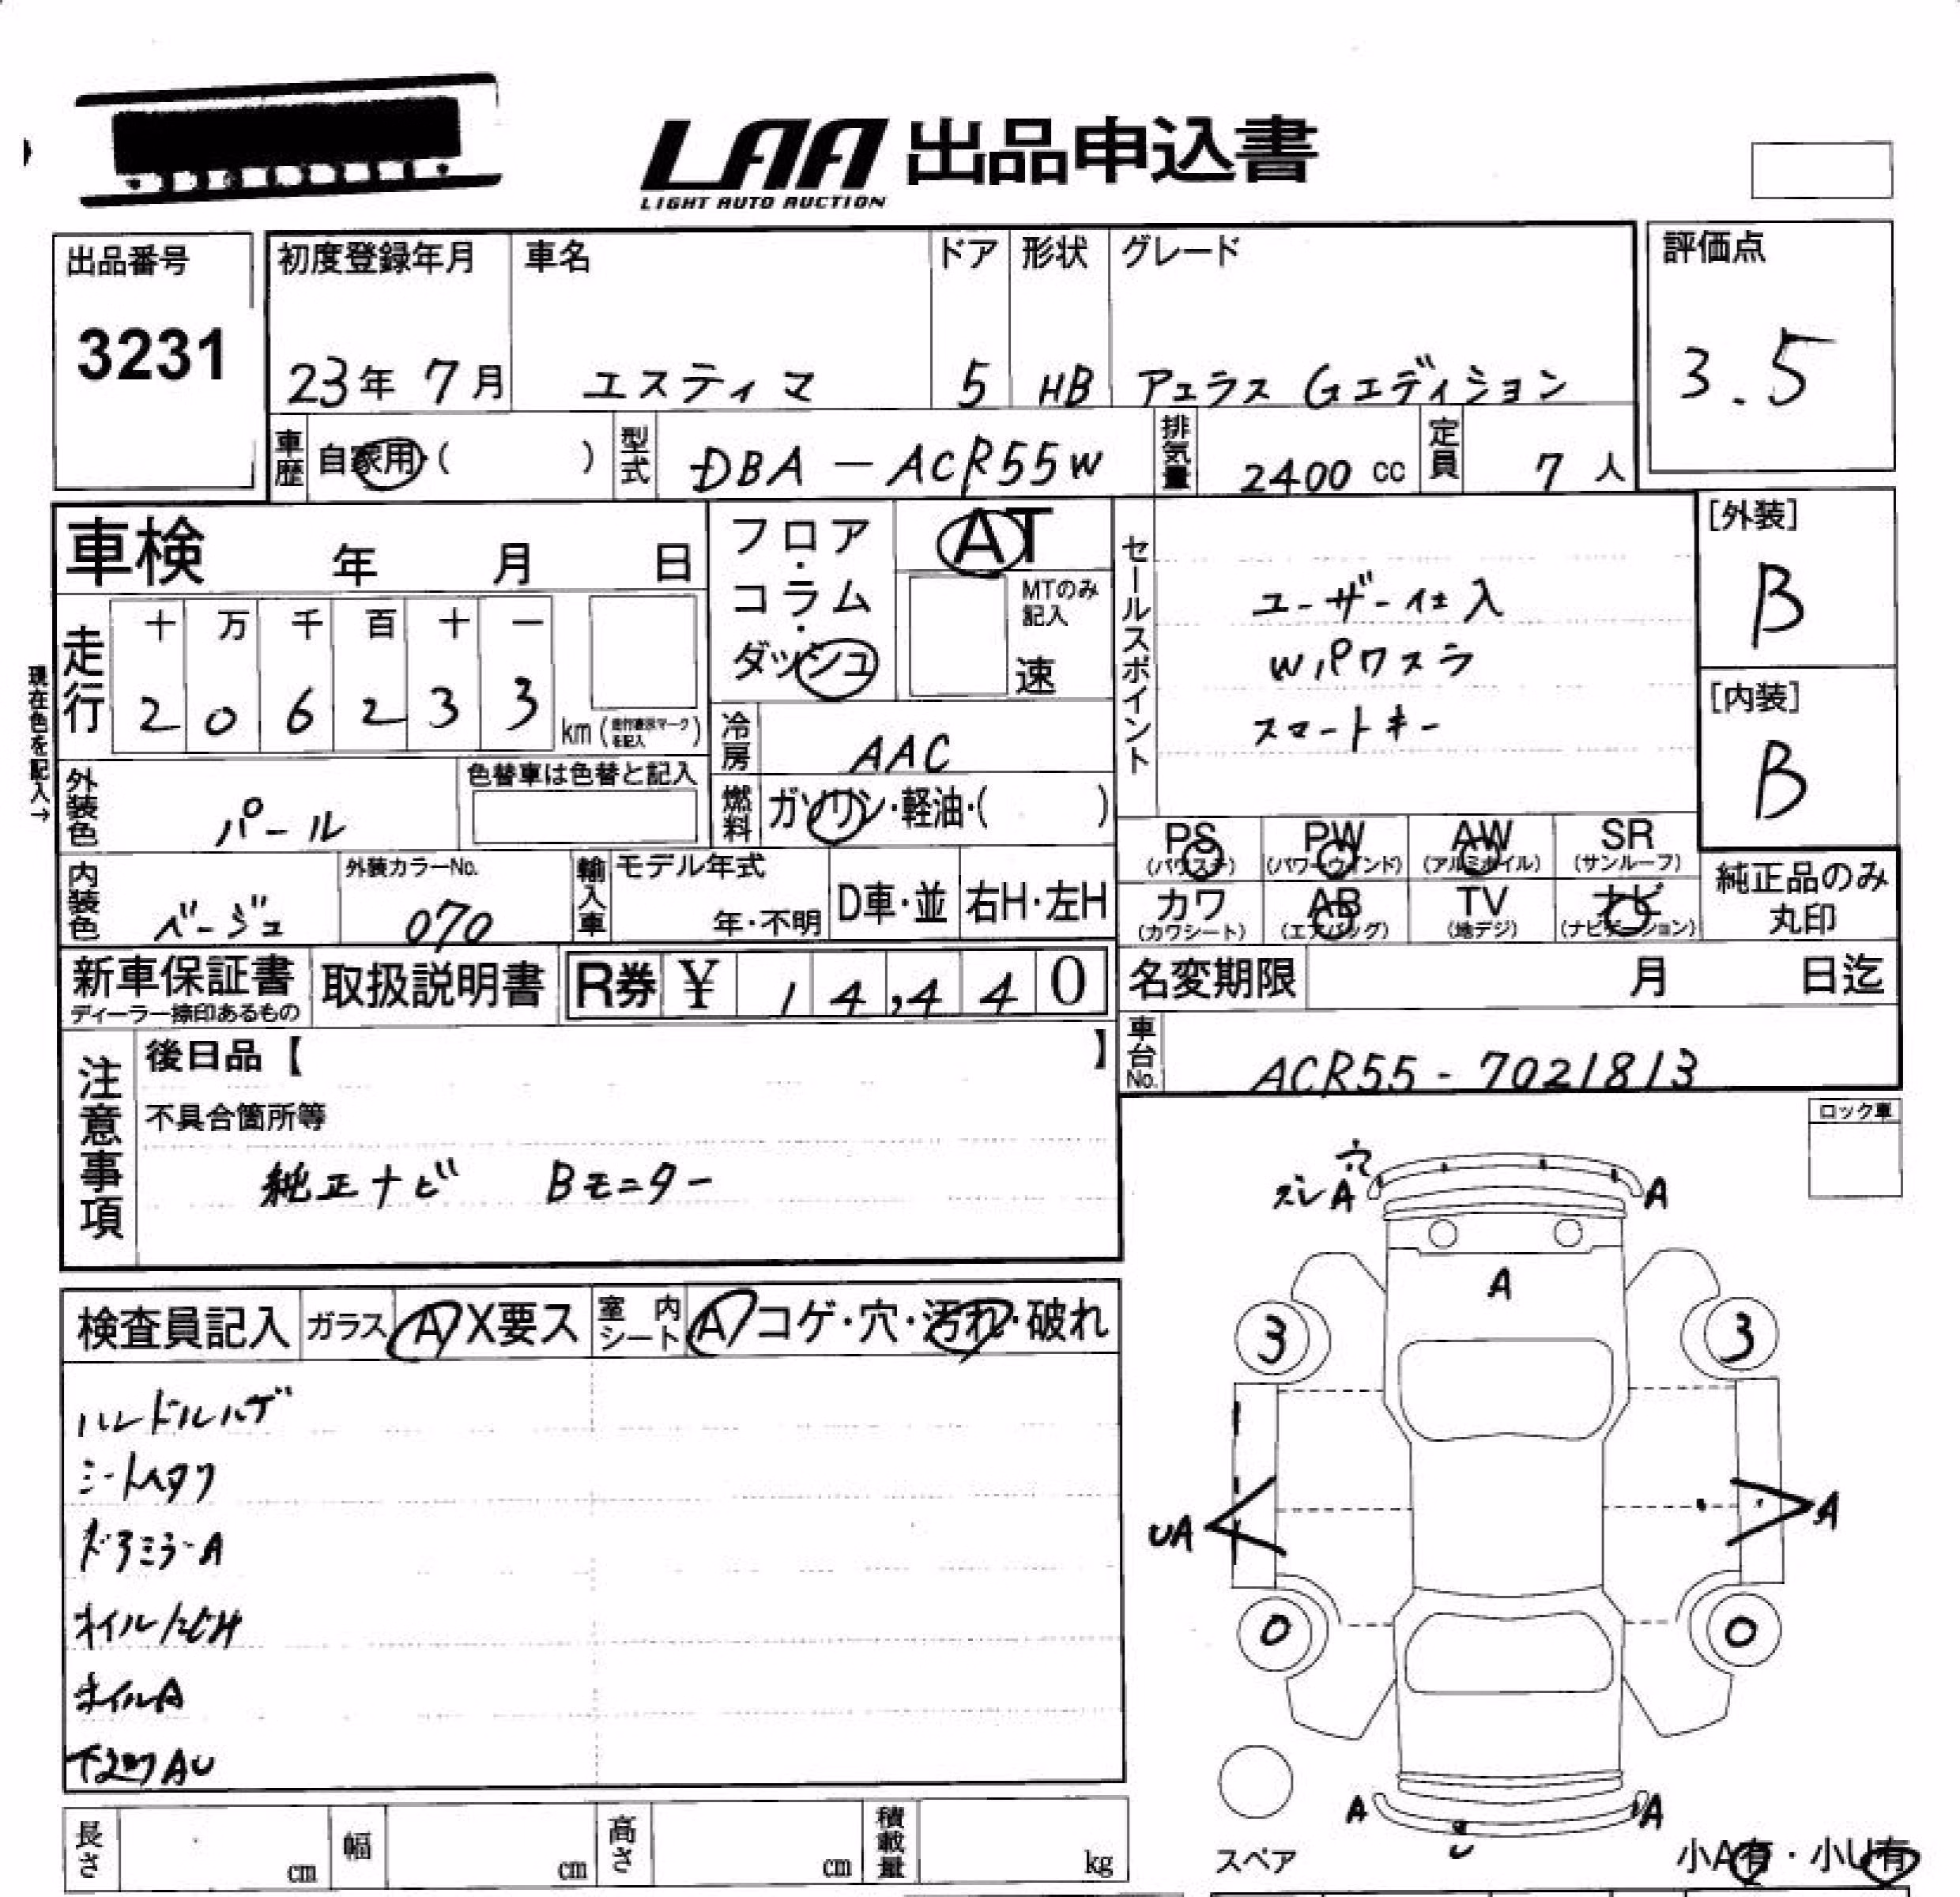 LAA 出品申込書
LIGHT AUTO AUCTION
出品番号
3231
初度登録年月 車名 ドア 形状 グレード
23年 7月 エスティマ 5 HB アエラス Gエディション
評価点
3.5
車歴 自家用・( ) 型式 DBA-ACR55W 排気量 2400 cc 定員 7 人
車検 年 月 日
フロア・コラム・ダッシュ
AT
MTのみ記入
速
セールスポイント
ユーザー仕入
W,Pワスラ
スマートキー
[外装]
B
[内装]
B
現在色を記入→
走行 十 万 千 百 十 一
2 0 6 2 3 3 km(走行表示マークを記入)
冷房 AAC
外装色 パール 色替車は色替と記入
燃料 ガソリン・軽油・( )
PS PW AW SR
(パワステ) (パワーウィンド) (アルミホイル) (サンルーフ)
カワ AB TV ナビ
(カワシート) (エアバッグ) (地デジ) (ナビゲーション)
純正品のみ
丸印
内装色 ベージュ 外装カラーNo. 070
輸入車 モデル年式 年・不明 D車・並 右H・左H
新車保証書 取扱説明書 R券 ¥ 14,440
ディーラー捺印あるもの
名変期限 月 日迄
車台No. ACR55-7021813
注意事項
後日品【 】
不具合箇所等
純正ナビ Bモニター
ロック車
検査員記入 ガラス A X要ス 室内シート A コゲ・穴・汚れ・破れ
ハンドルハゲ
シートヘタリ
ドアミラーA
オイルにじみ
ホイルA
下廻りAU
穴
ズレ A A
A
3 3
UA A
0 0
A A
U
スペア
小A有・小U有
長さ cm 幅 cm 高さ cm 積載量 kg